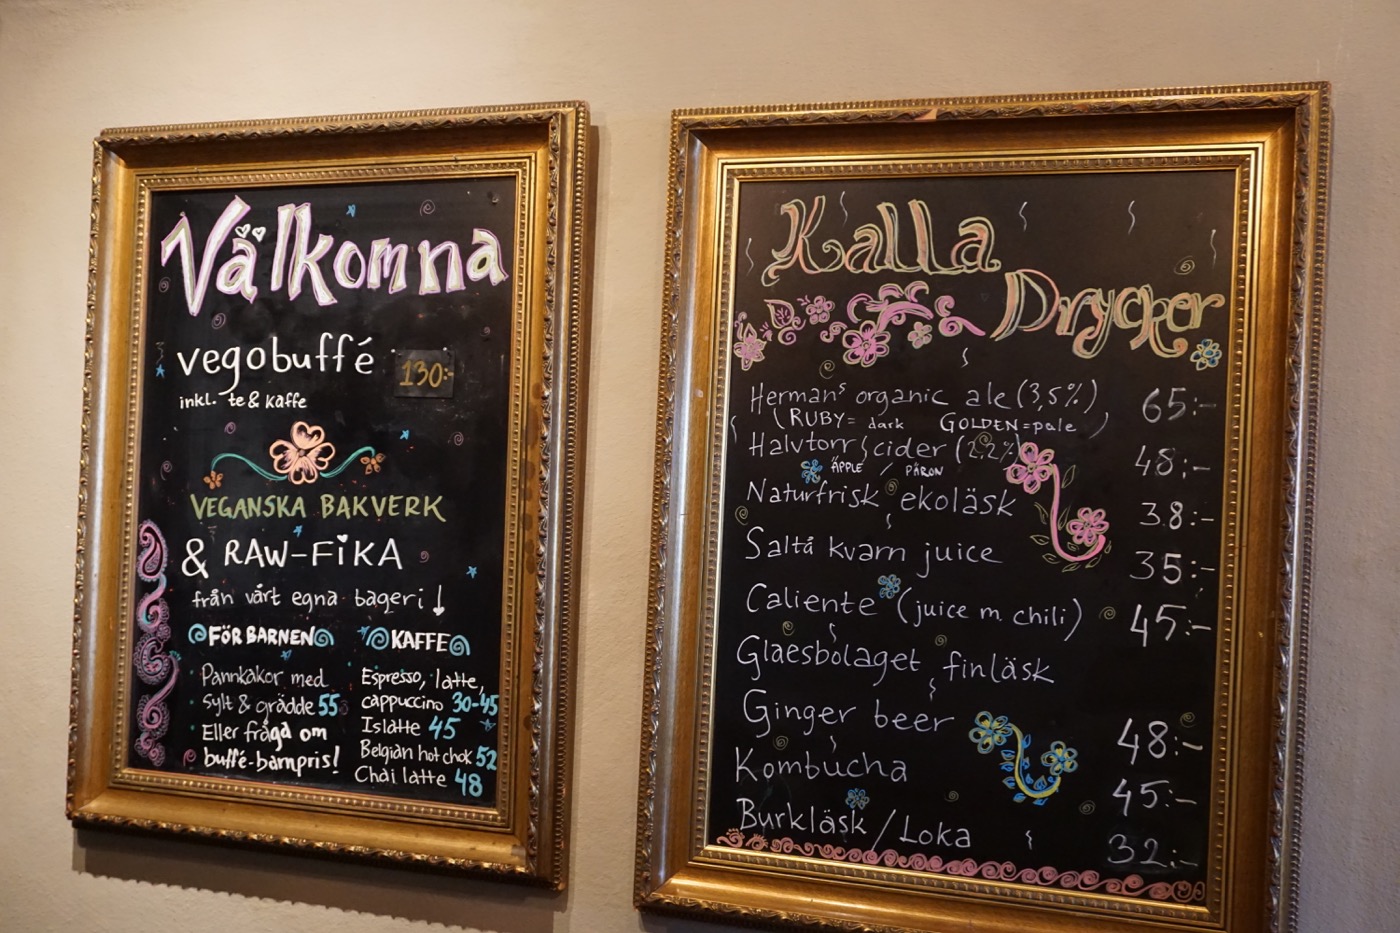 Välkomna
vegobuffé 130:-
inkl. te & kaffe
VEGANSKA BAKVERK
& RAW-FIKA
från vårt egna bageri ↓
FÖR BARNEN
Pannkakor med
sylt & grädde 55
Eller fråga om
buffé-barnpris!
KAFFE
Espresso, latte,
cappuccino 30-45
Islatte 45
Belgian hot chok 52
Chai latte 48
Kalla
Drycker
Hermans organic ale (3,5%) 65:-
(RUBY= dark GOLDEN=pale)
Halvtorr cider (2,2%) 48:-
ÄPPLE / PÄRON
Naturfrisk ekoläsk 38:-
Saltå kvarn juice 35:-
Caliente (juice m chili) 45:-
Glaesbolaget finläsk
Ginger beer 48:-
Kombucha 45:-
Burkläsk / Loka 32:-